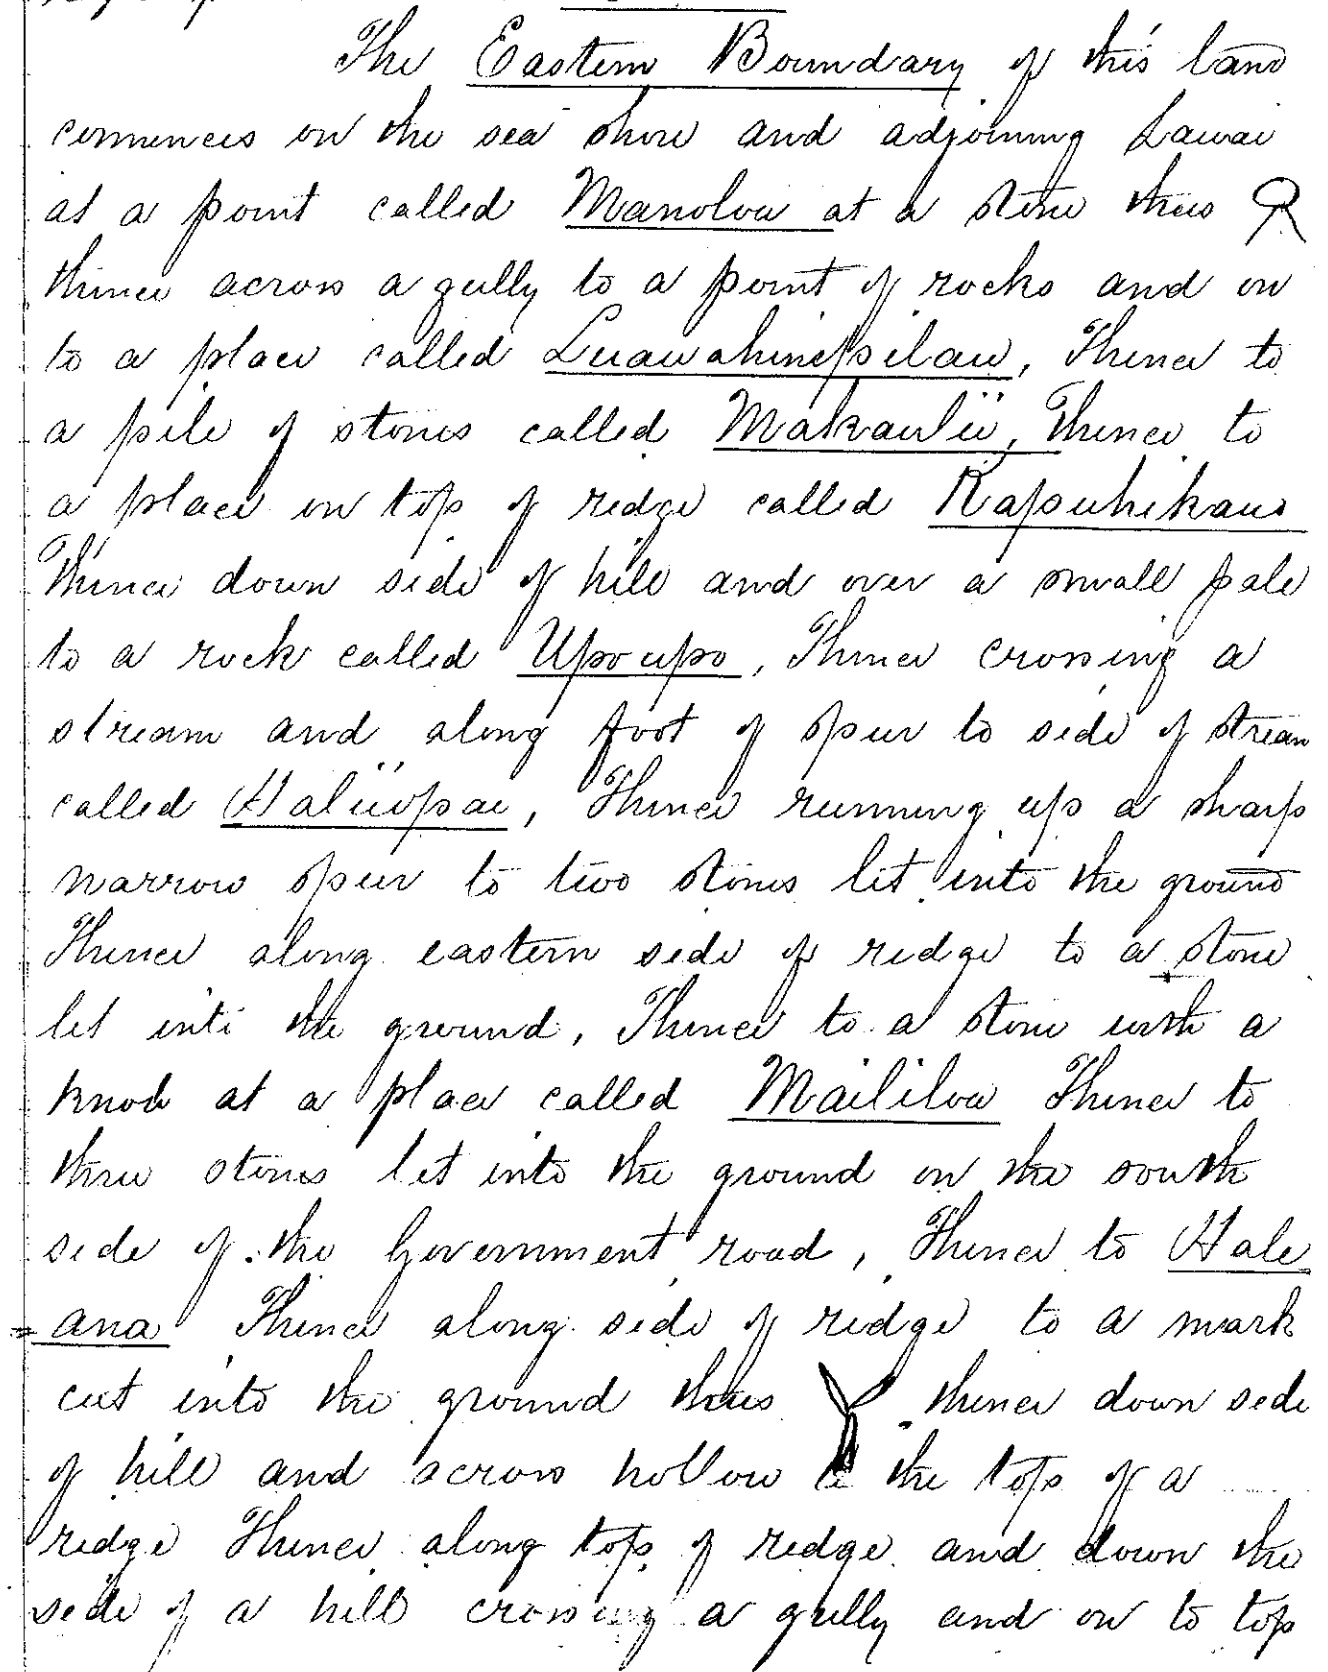 The Eastern Boundary of this land
commences on the sea shore and adjoining Lawai
at a point called Manoloa at a stone thus
thence across a gully to a point of rocks and on
to a place called Luawahinepilau, Thence to
a pile of stones called Makaulii, Thence to
a place on top of ridge called Kapuhikau
Thence down side of hill and over a small pali
to a rock called Upoupo, Thence crossing a
stream and along foot of spur to side of stream
called Haliiopae, Thence running up a sharp
narrow spur to two stones let into the ground
Thence along eastern side of ridge to a stone
let into the ground, Thence to a stone with a
knob at a place called Maililoa Thence to
three stones let into the ground on the south
side of the Government road, Thence to Hale
=ana Thence along side of ridge to a mark
cut into the ground thus thence down side
of hill and across hollow to the top of a
ridge Thence along top of ridge and down the
side of a hill crossing a gully and on to top